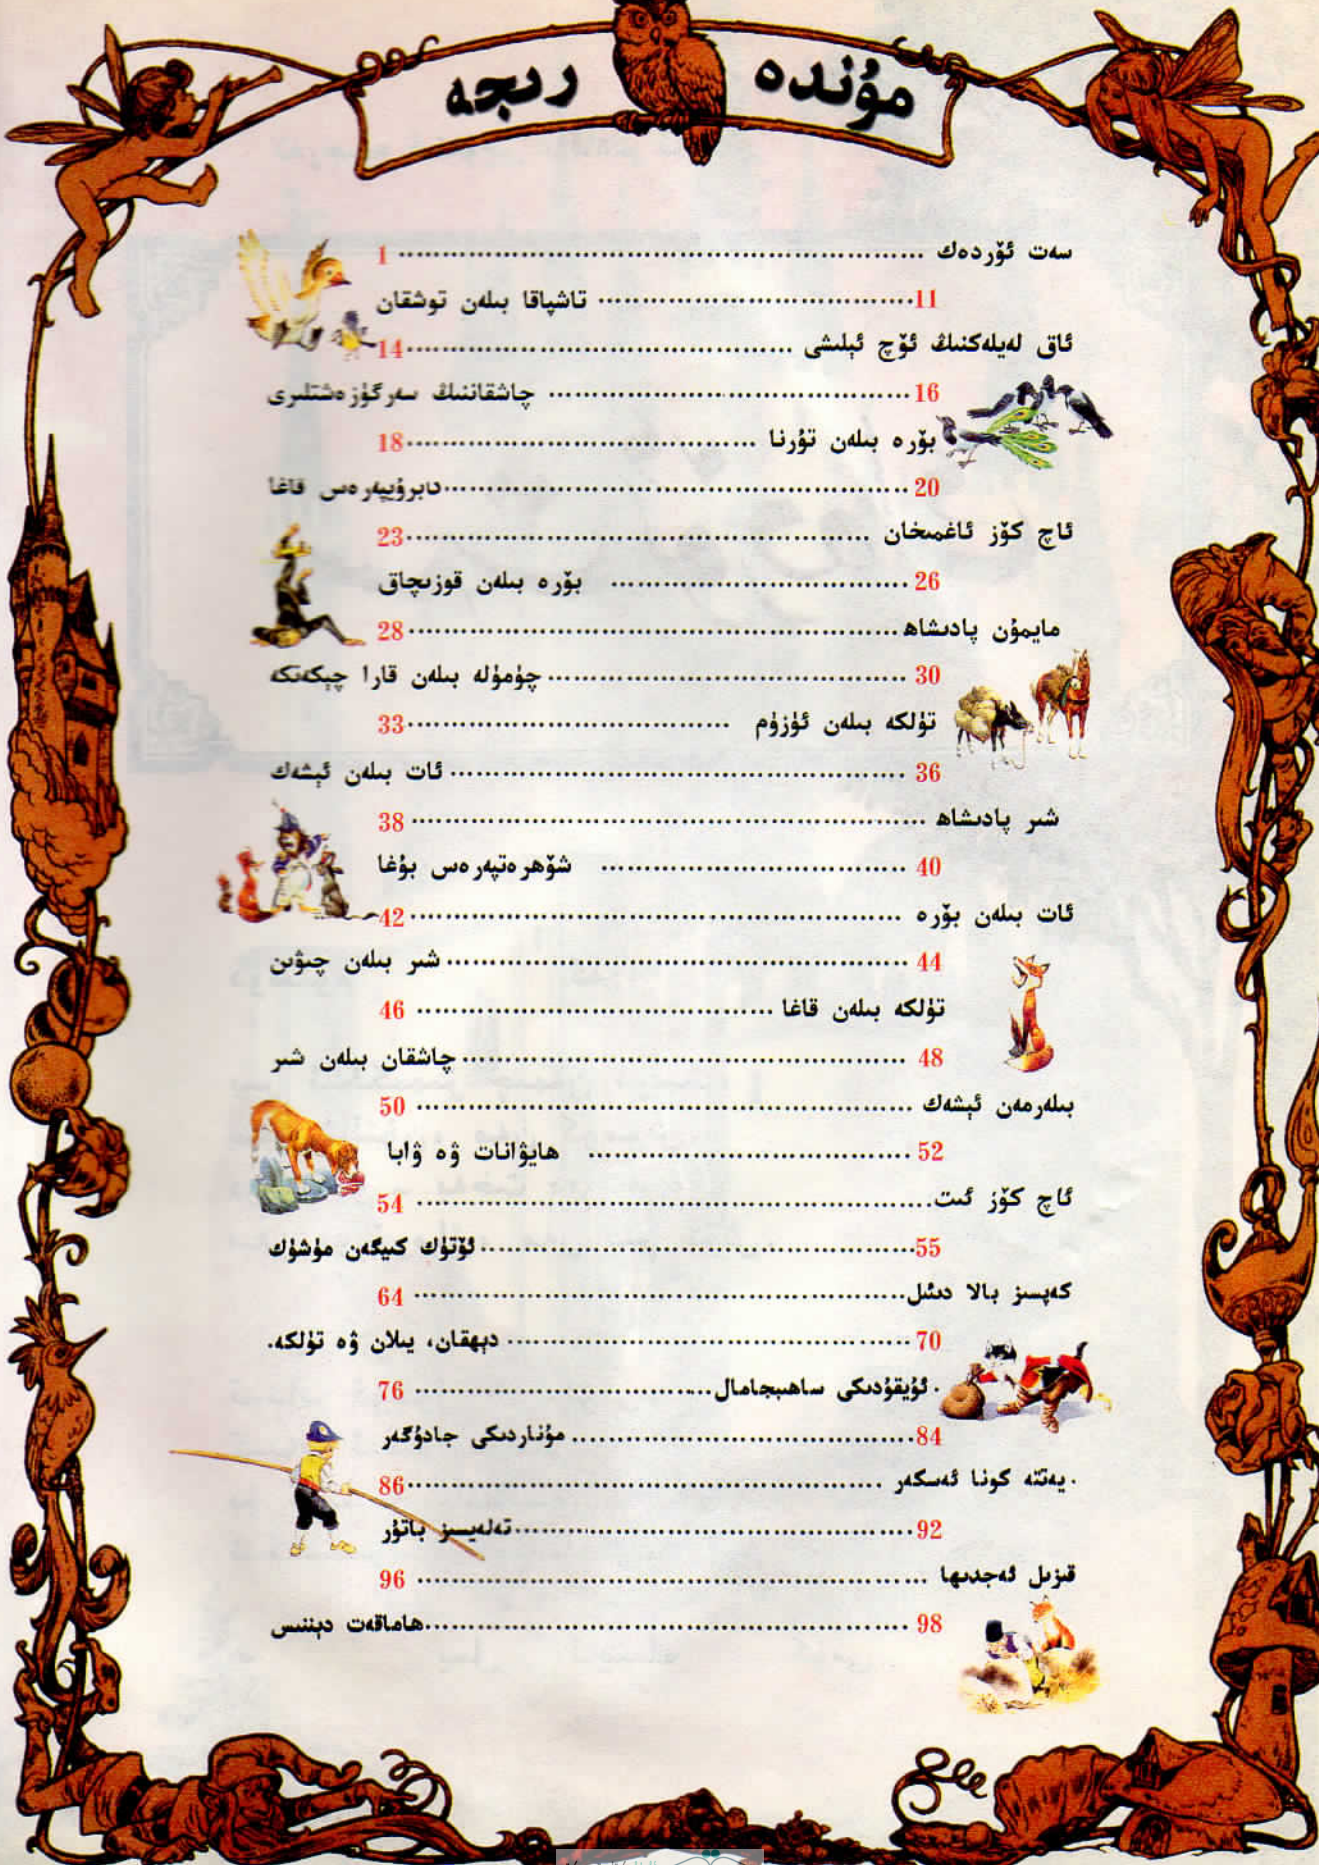 مۇندەرىجە
سەت ئۆردەك ........ 1
تاشپاقا بىلەن توشقان ........ 11
ئاق لەيلەكنىڭ ئۆچ ئېلىشى ........ 14
چاشقاننىڭ سەرگۈزەشتلىرى ........ 16
بۆرە بىلەن تۇرنا ........ 18
ئابرۇيپەرەس قاغا ........ 20
ئاچ كۆز ئاغمىخان ........ 23
بۆرە بىلەن قوزىچاق ........ 26
مايمۇن پادىشاھ ........ 28
چۈمۈلە بىلەن قارا چېكەتكە ........ 30
تۈلكە بىلەن ئۈزۈم ........ 33
ئات بىلەن ئېشەك ........ 36
شىر پادىشاھ ........ 38
شۆھرەتپەرەس بۇغا ........ 40
ئات بىلەن بۆرە ........ 42
شىر بىلەن چىۋىن ........ 44
تۈلكە بىلەن قاغا ........ 46
چاشقان بىلەن شىر ........ 48
بىلەرمەن ئېشەك ........ 50
ھايۋانات ۋە ۋابا ........ 52
ئاچ كۆز ئىت ........ 54
ئۆتۈك كىيگەن مۈشۈك ........ 55
كەپسىز بالا دىئىل ........ 64
دېھقان، يىلان ۋە تۈلكە. ........ 70
ئۇيقۇدىكى ساھىبجامال ........ 76
مۇناردىكى جادۇگەر ........ 84
يەتتە كونا ئەسكەر ........ 86
تەلەيسىز باتۇر ........ 92
قىزىل ئەجدىھا ........ 96
ھاماقەت دېننىس ........ 98